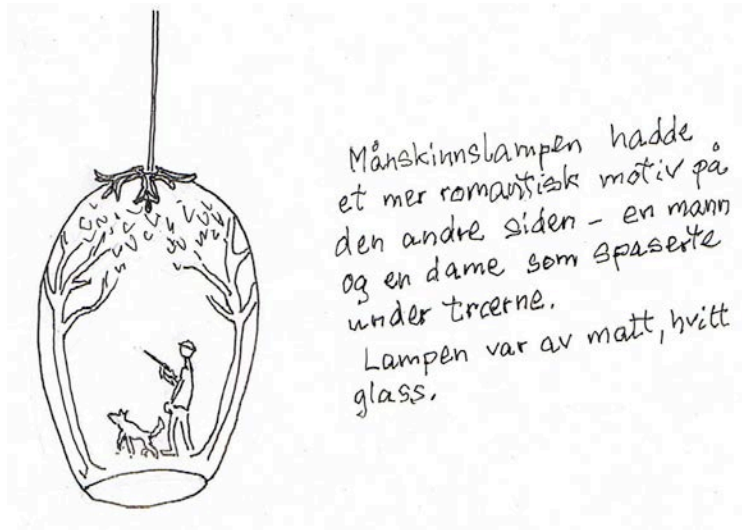 Månskinnslampen hadde
et mer romantisk motiv på
den andre siden - en mann
og en dame som spaserte
under trærne.
Lampen var av matt, hvitt
glass.